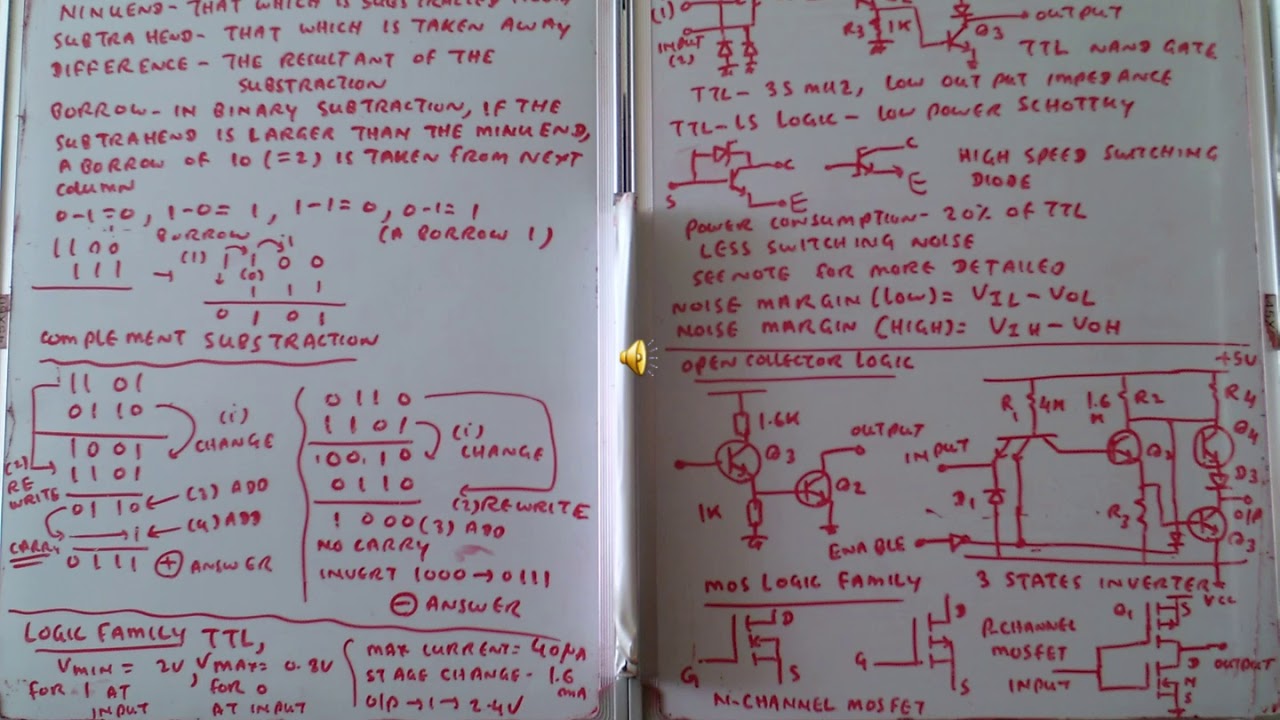 NINUEND- THAT WHICH IS SUBTRACTED FROM
SUBTRAHEND- THAT WHICH IS TAKEN AWAY
DIFFERENCE - THE RESULTANT OF THE
SUBSTRACTION
BORROW- IN BINARY SUBTRACTION, IF THE
SUBTRAHEND IS LARGER THAN THE MINUEND,
A BORROW OF 10 (=2) IS TAKEN FROM NEXT
COLUMN
0-1=0, 1-0= 1, 1-1=0, 0-1=1
BORROW (A BORROW 1)
1100
111 →
(1) 1 1 0 0
(0)
1 1 1
0 1 0 1
COMPLEMENT SUBSTRACTION
11 01
0110 (i)
CHANGE
1001
(2) 1101
RE
WRITE
0110 ← (3) ADD
1 ← (4) ADD
CARRY
0111 + ANSWER
0110
1101 (i)
10010 CHANGE
0110
(2) REWRITE
1000 (3) ADD
NO CARRY
INVERT 1000 → 0111
- ANSWER
LOGIC FAMILY TTL,
VMIN = 2V, VMAX= 0.8V
FOR 1 AT FOR 0
INPUT AT INPUT
MAX CURRENT= 40μA
STAGE CHANGE- 1.6
mA
O/P → 1 → 2.4V
(1)
INPUT
(2)
R3 1K
Q3
OUTPUT
TTL NAND GATE
TTL- 35 MHZ, LOW OUT PUT IMPEDANCE
TTL-LS LOGIC - LOW POWER SCHOTTKY
S C E
C E
HIGH SPEED SWITCHING
DIODE
POWER CONSUMPTION- 20% OF TTL
LESS SWITCHING NOISE
SEE NOTE FOR MORE DETAILED
NOISE MARGIN (LOW)= VIL-VOL
NOISE MARGIN (HIGH)= VIH-VOH
OPEN COLLECTOR LOGIC
1.6K
Q3
1K
OUTPUT
Q2
+5V
R1 4K
1.6
R2
R4
INPUT
Q4
D3
D1
R3
O/P
Q3
ENABLE
MOS LOGIC FAMILY
3 STATES INVERTER
G D S
N-CHANNEL MOSFET
G D S
P-CHANNEL
MOSFET
VCC
Q1
S
D
OUTPUT
N
S
INPUT